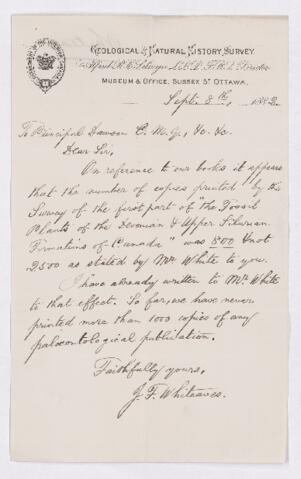 GEOLOGICAL & NATURAL HISTORY SURVEY.
Alfred R. C. Selwyn, L.L.D., F.R.S., Director
MUSEUM & OFFICE, SUSSEX ST OTTAWA.
Sept. 8th, 1882
To Principal Dawson C. M. G., &c. &c.
Dear Sir,
On reference to our books it appears
that the number of copies printed by the
Survey of the first part of "The Fossil
Plants of the Devonian & Upper Silurian
Formations of Canada" was 800 & not
2500 as stated by Mr. White to you.
I have already written to Mr. White
to that effect. So far, we have never
printed more than 1000 copies of any
palaeontological publication.
Faithfully yours,
J. F. Whiteaves.